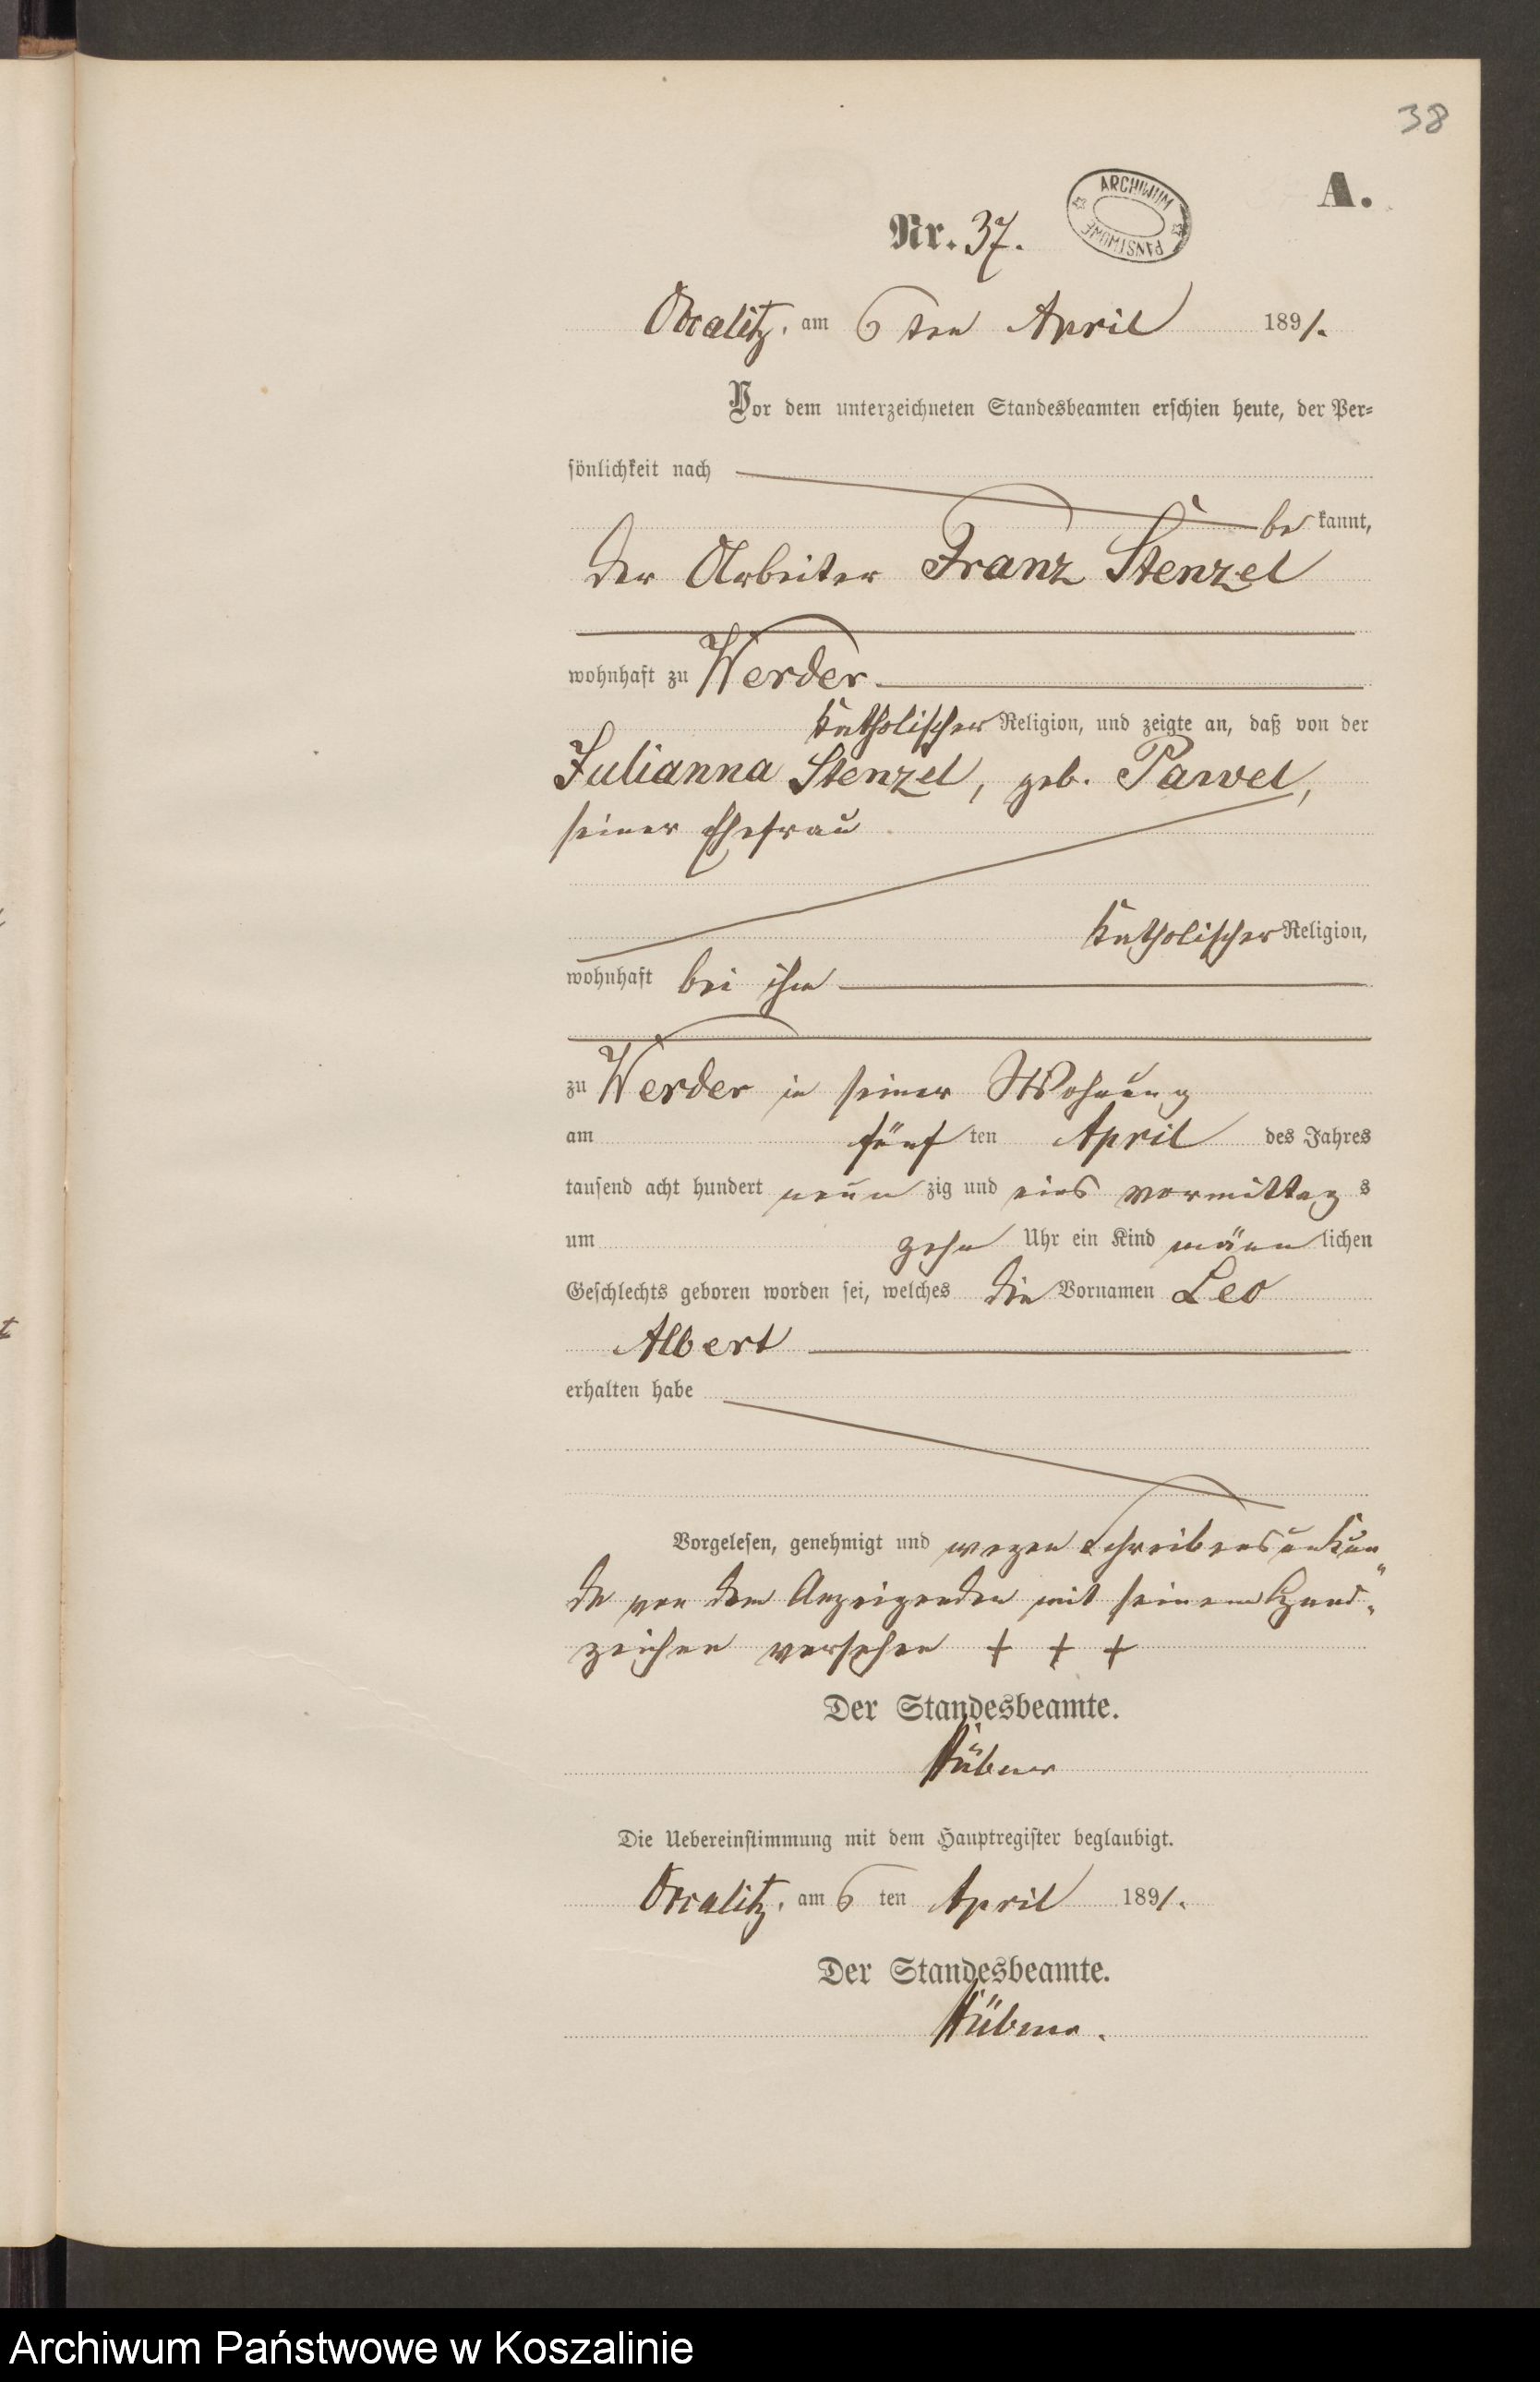 38
A.
Nr. 37.
ARCHIWUM
PAŃSTWOWE
Occalitz, am 6ten April 1891.
Vor dem unterzeichneten Standesbeamten erschien heute, der Per=
sönlichkeit nach
be kannt,
der Arbeiter Franz Stenzel
wohnhaft zu Werder
katholischer Religion, und zeigte an, daß von der
Julianna Stenzel, geb. Pawel,
seiner Ehefrau
katholischer Religion,
wohnhaft bei ihm
zu Werder in seiner Wohnung
am fünf ten April des Jahres
tausend acht hundert neun zig und eins vormittag s
um zehn Uhr ein Kind männ lichen
Geschlechts geboren worden sei, welches die Vornamen Leo
Albert
erhalten habe
Vorgelesen, genehmigt und wegen Schreibensunkun
de von dem Anzeigenden mit seinem Hand=
zeichen versehen + + +
Der Standesbeamte.
Hübner
Die Uebereinstimmung mit dem Hauptregister beglaubigt.
Occalitz, am 6 ten April 1891.
Der Standesbeamte.
Hübner.
Archiwum Państwowe w Koszalinie